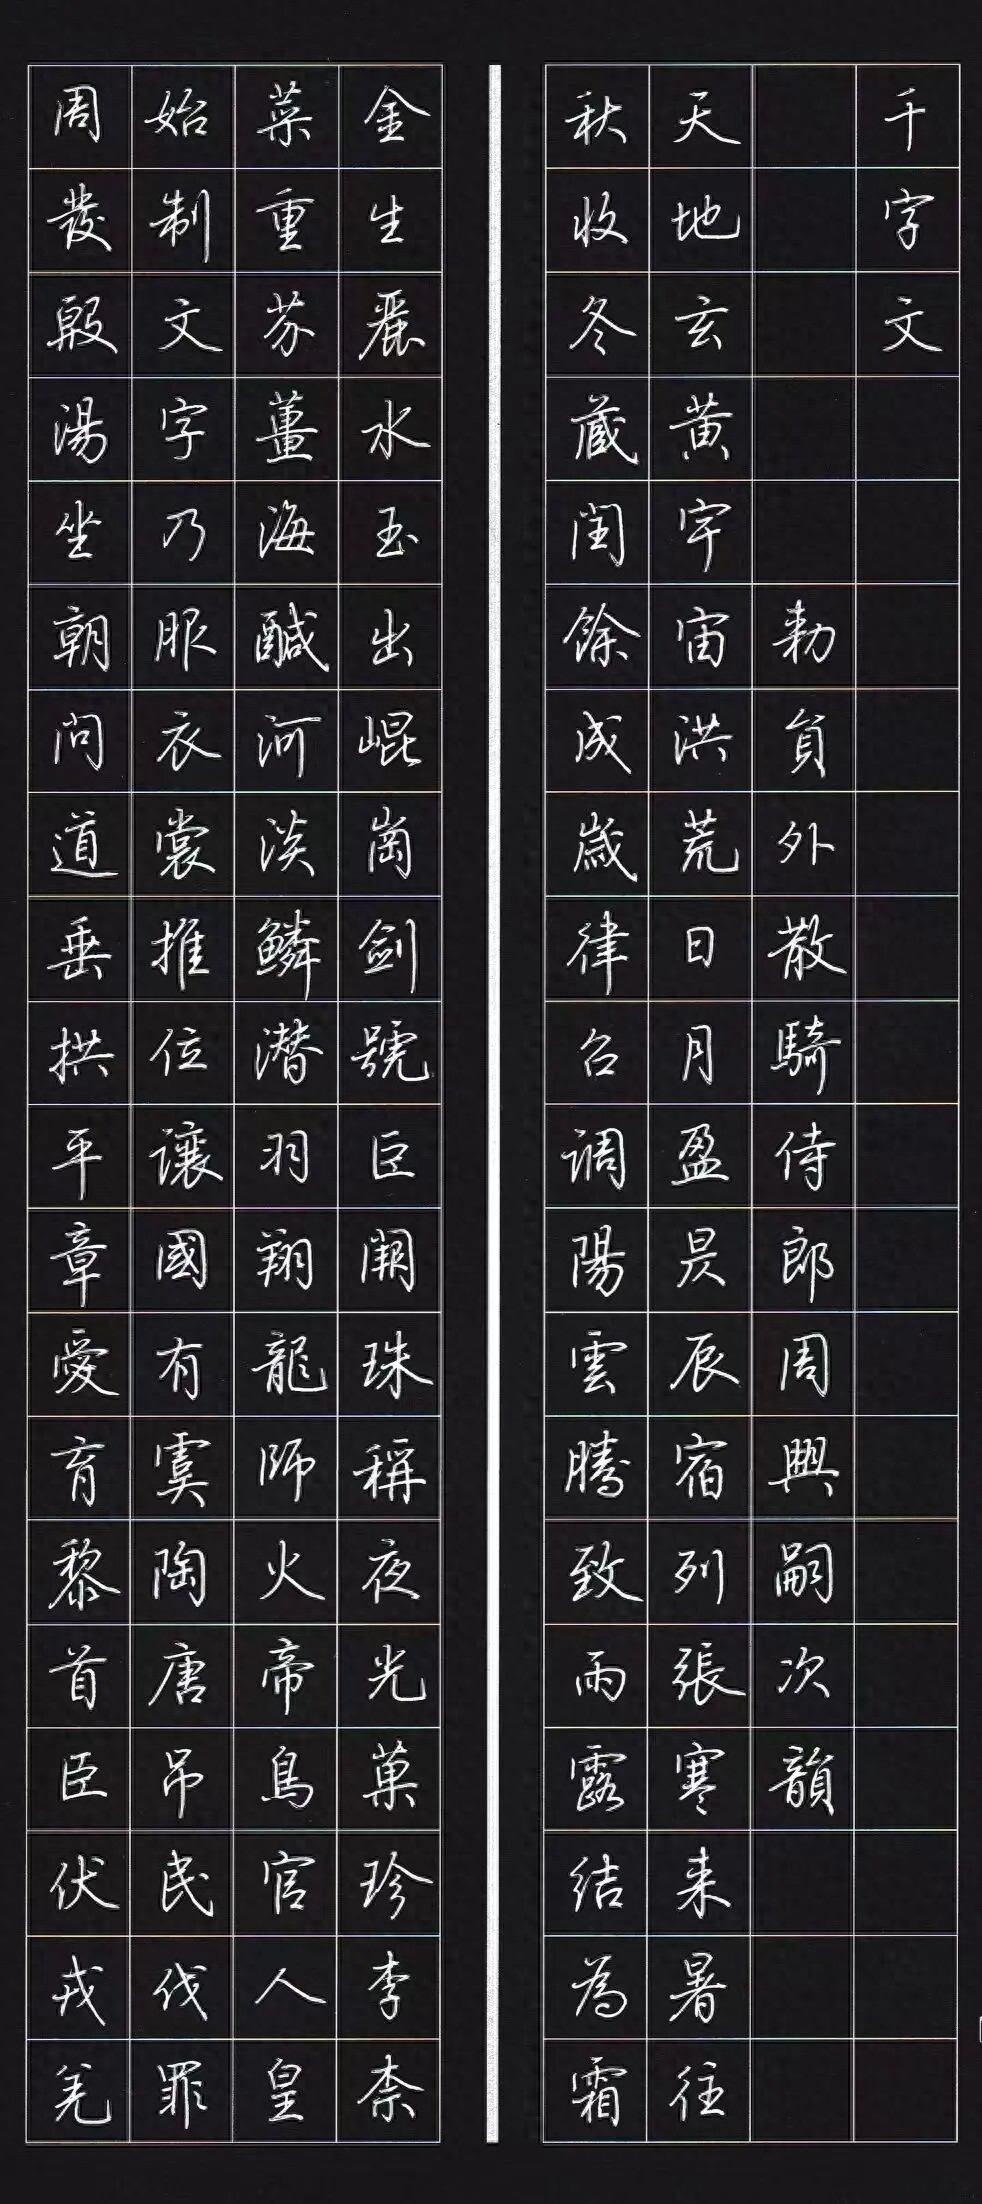 千字文
勅員外散騎侍郎周興嗣次韻
天地玄黄宇宙洪荒日月盈昃辰宿列張寒来暑往
秋收冬蔵閏餘成歲律吕調陽雲騰致雨露結為霜
金生麗水玉出崐崗劍號巨闕珠稱夜光菓珍李柰
菜重芥薑海鹹河淡鱗潛羽翔龍師火帝鳥官人皇
始制文字乃服衣裳推位讓國有虞陶唐吊民伐罪
周發殷湯坐朝問道垂拱平章愛育黎首臣伏戎羌